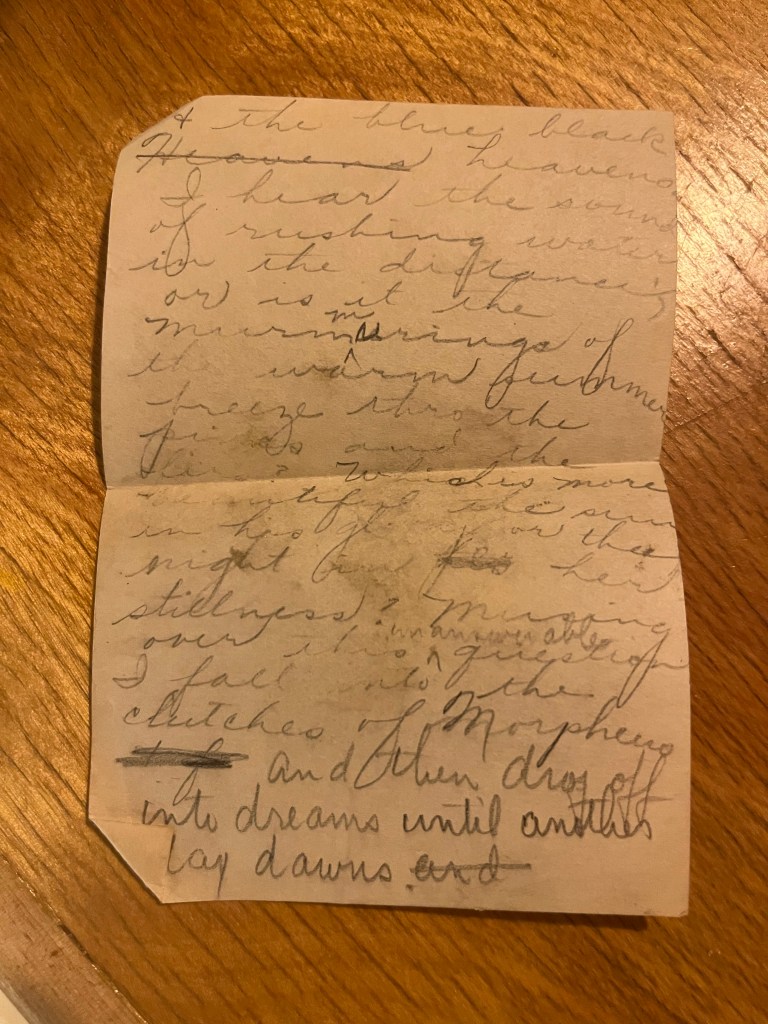 & the blue black
Heavens heavens
I hear the sound
of rushing water
in the distance;
or is it the
murmurings of
the warm summer
breeze thro the
pines and the
Which is more
beautiful the sun
in his glory or the
night in her
stillness? Musing
over this unanswerable question
I fall into the
clutches of Morpheus
and then drop off
into dreams until another
day dawns. and